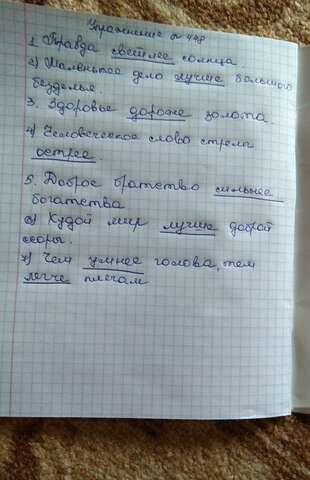 Упражнение № 448
1. Правда светлее солнца
2) Маленькое дело лучше большого
безделья.
3. Здоровье дороже золота.
4) Человеческое слово стрелы
острее.
5. Доброе братство сильнее
богатства
6) Худой мир лучше доброй
ссоры.
7) Чем умнее голова, тем
легче плечам